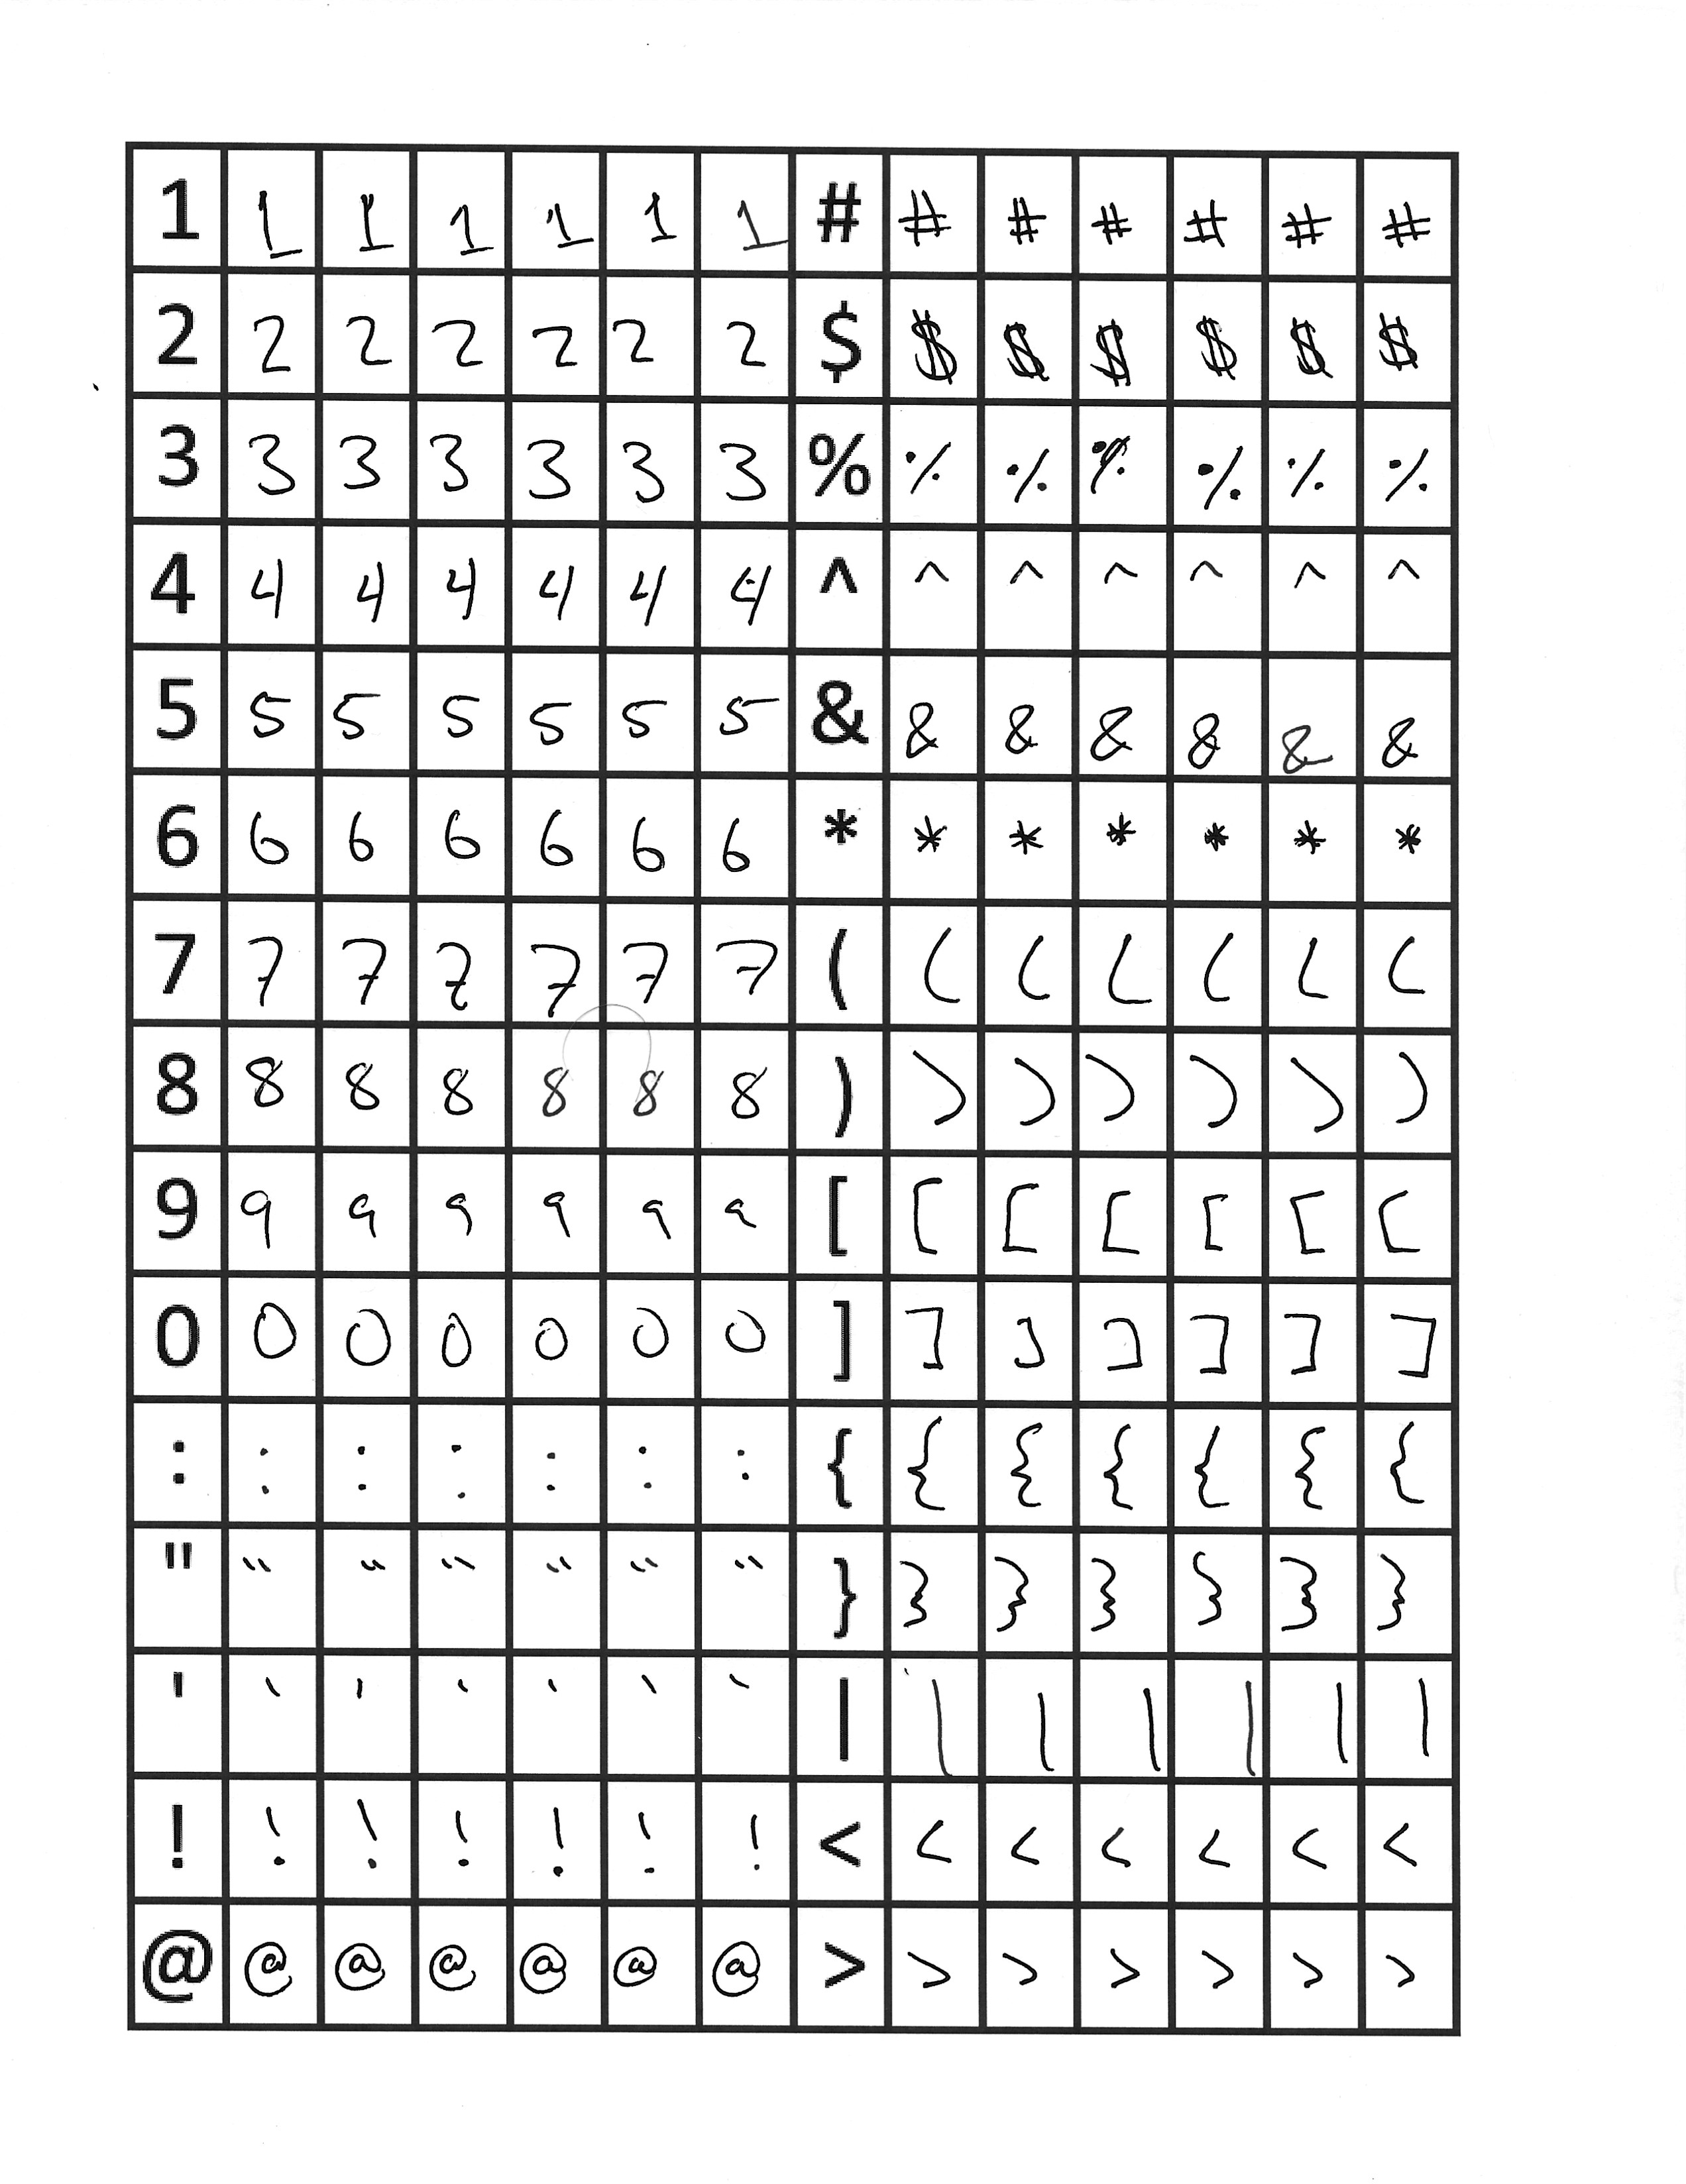 1 1 1 1 1 1 1 # # # # # # #
2 2 2 2 2 2 2 $ $ $ $ $ $ $
3 3 3 3 3 3 3 % % % % % % %
4 4 4 4 4 4 4 ^ ^ ^ ^ ^ ^ ^
5 5 5 5 5 5 5 & & & & & & &
6 6 6 6 6 6 6 * * * * * * *
7 7 7 7 7 7 7 ( ( ( ( ( ( (
8 8 8 8 8 8 8 ) ) ) ) ) ) )
9 9 9 9 9 9 9 [ [ [ [ [ [ [
0 0 0 0 0 0 0 ] ] ] ] ] ] ]
: : : : : : : { { { { { { {
" " " " " " " } } } } } } }
' ' ' ' ' ' ' | | | | | | |
! ! ! ! ! ! ! < < < < < < <
@ @ @ @ @ @ @ > > > > > > >